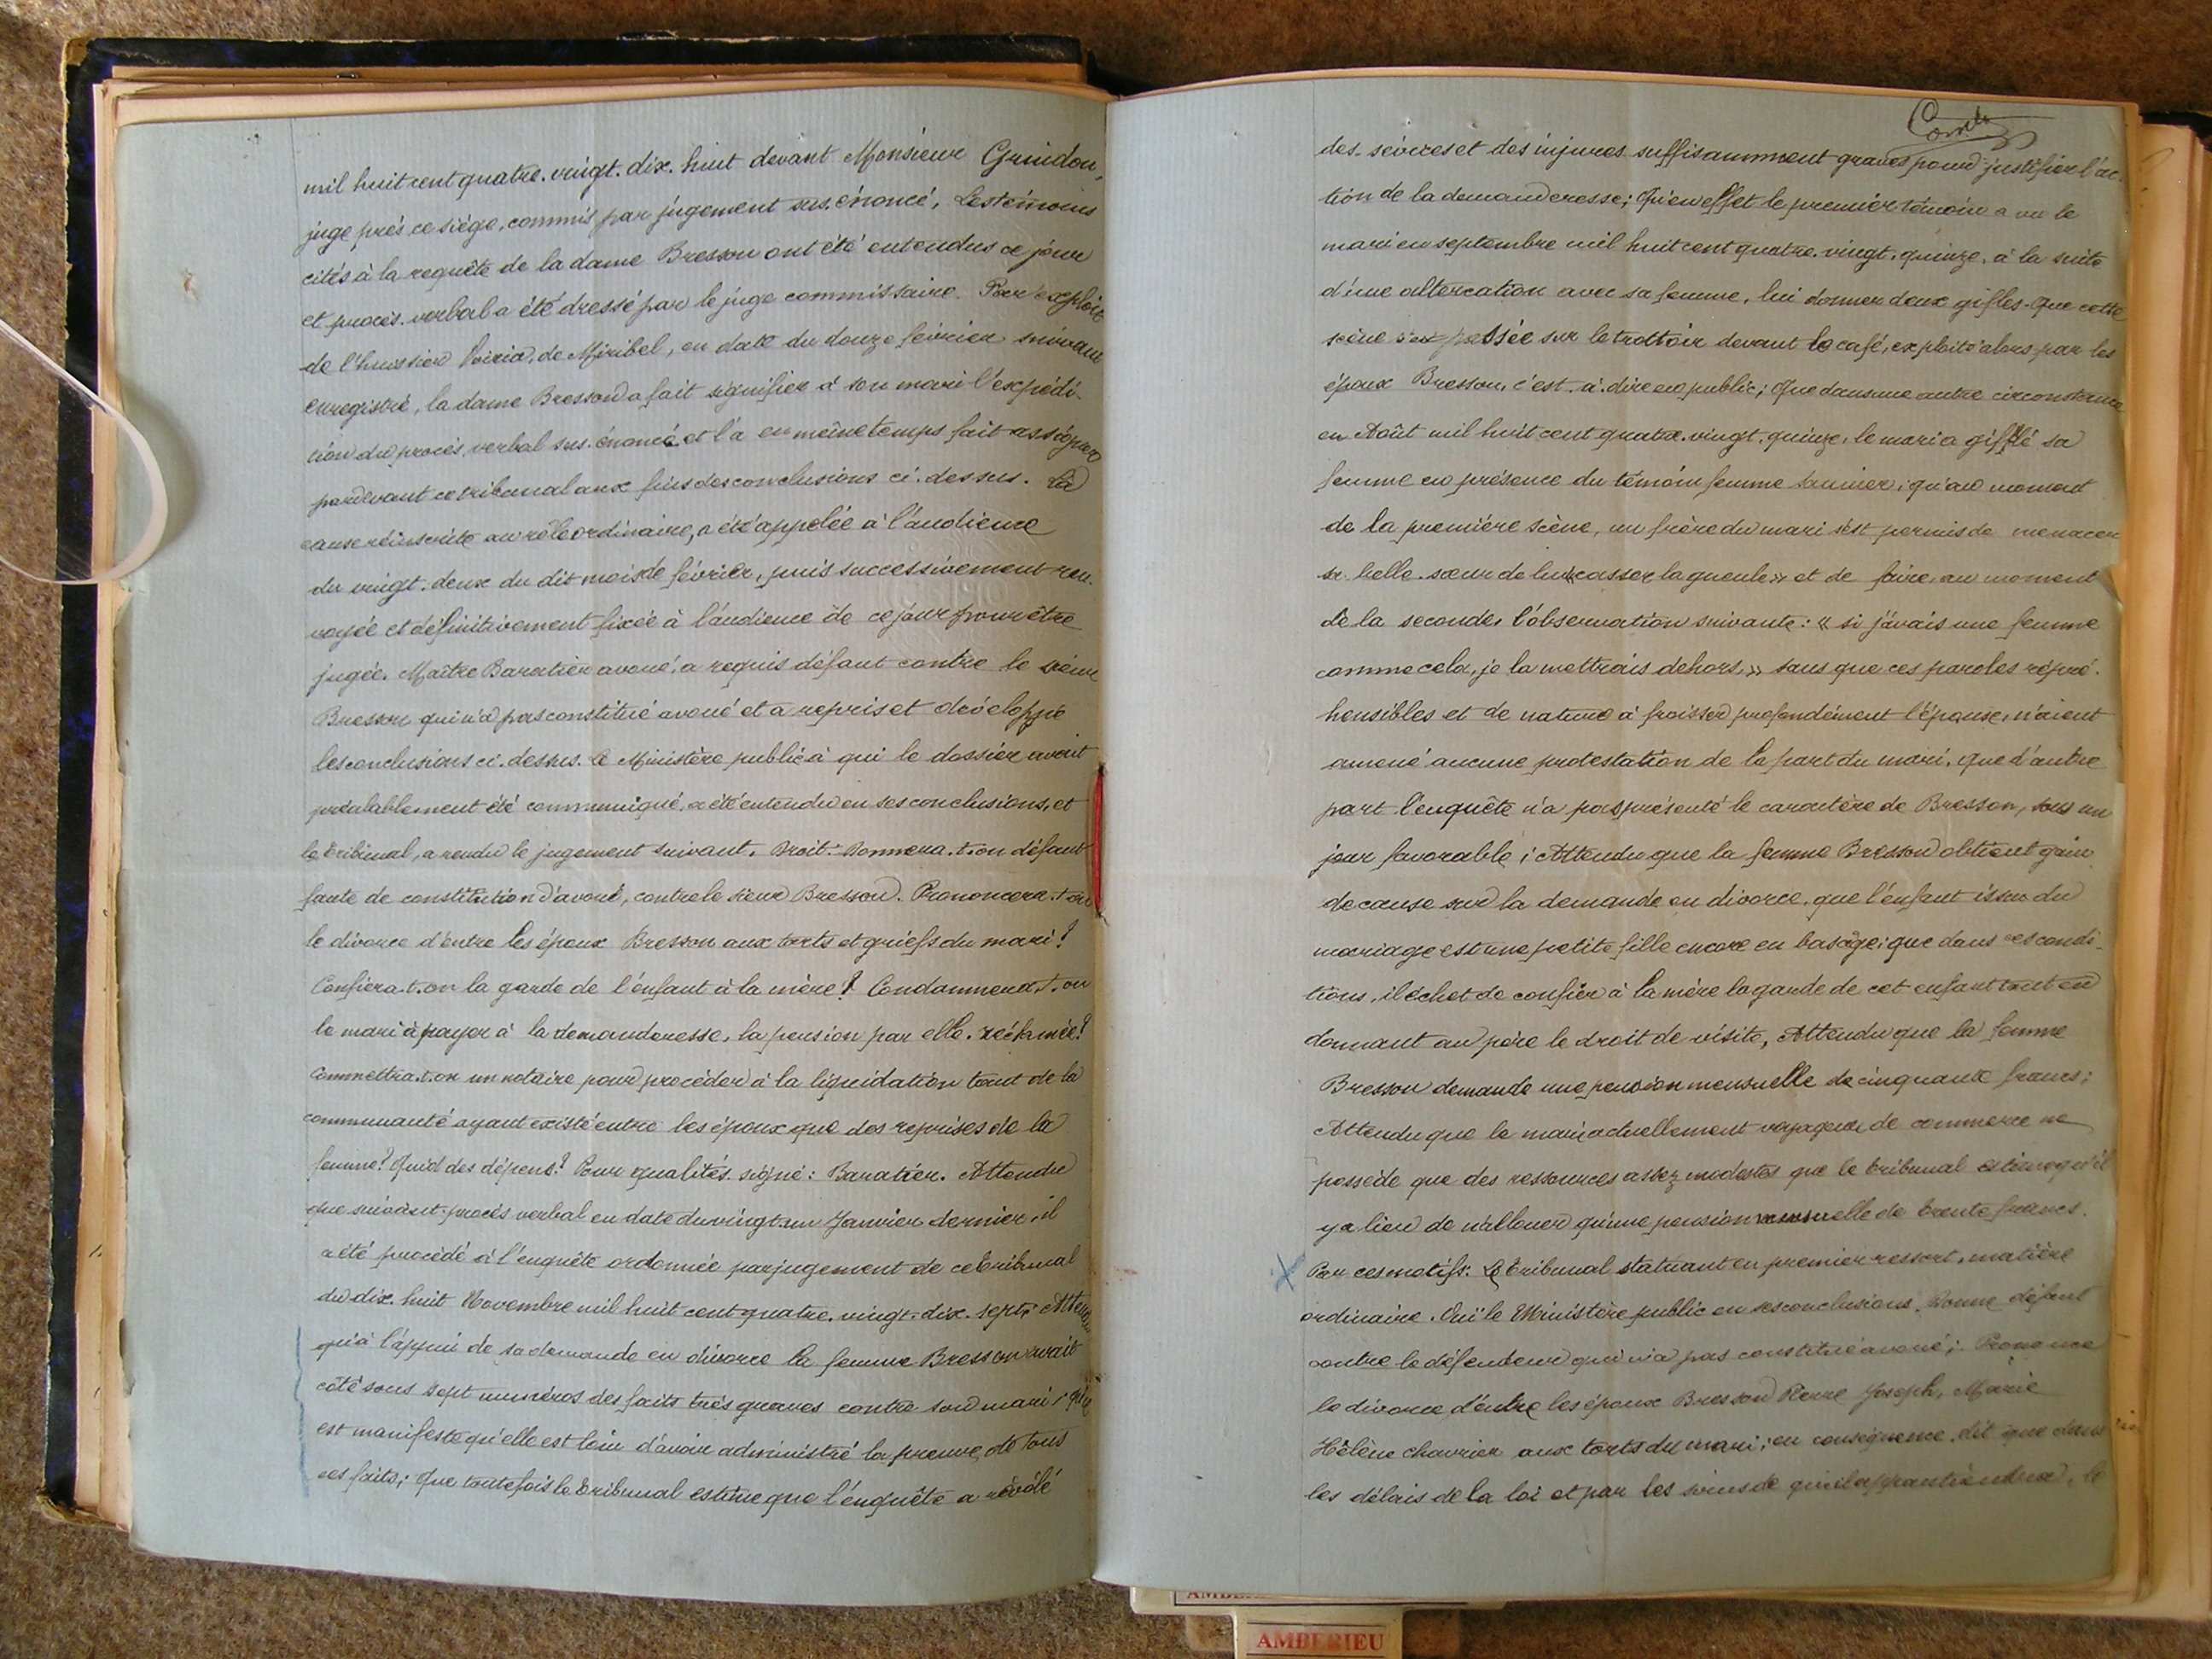 mil huit cent quatre. vingt. dix. huit devant Monsieur Grindon,
juge près ce siège, commis par jugement sus. énoncé, Les témoins
cités à la requête de la dame Bresson ont été entendus ce jour
et procès. verbal a été dressé par le juge commissaire. Par exploit
de l'huissier de Miribel, en date du douze février suivant
enregistré, la dame Bresson a fait signifier à son mari l'expédi-
tion du procès. verbal sus. énoncé et l'a en même temps fait assigner
pardevant ce tribunal aux fins des conclusions ci. dessus. La
cause réinscrite au rôle ordinaire, a été appelée à l'audience
du vingt. deux du dit mois de février, puis successivement ren.
voyée et définitivement fixée à l'audience de ce jour pour être
jugée. Maître Baratier avoué, a requis défaut contre le sieur
Bresson qui n'a pas constitué avoué et a repris et développé
les conclusions ci. dessus. Le Ministère public à qui le dossier avait
préalablement été communiqué, a été entendu en ses conclusions, et
le tribunal, a rendu le jugement suivant. Droit. Donnera. t. on défaut
faute de constitution d'avoué, contre le sieur Bresson. Prononcera. t. on
le divorce d'entre les époux Bresson aux torts et griefs du mari?
Confiera. t. on la garde de l'enfant à la mère? Condamnera. t. on
le mari à payer à la demanderesse, la pension par elle. réclamée?
Commettra. t. on un notaire pour procéder à la liquidation tant de la
communauté ayant existé entre les époux que des reprises de la
femme? Quid des dépens? Pour qualités. signé: Baratier. Attendu
que suivant. procès verbal en date du vingt. un Janvier dernier, il
a été procédé à l'enquête ordonnée par jugement de ce tribunal
du dix. huit Novembre mil huit cent quatre. vingt. dix. sept; Attendu
qu'à l'appui de sa demande en divorce la femme Bresson avait
coté sous sept numéros des faits très graves contre son mari; qu'il
est manifeste qu'elle est loin d'avoir administré la preuve de tous
ces faits; Que toutefois le tribunal estime que l'enquête a révélé
des. sévices et des injures. suffisamment graves pour justifier l'ac-
tion de la demanderesse; Qu'en effet le premier témoin a vu le
mari en septembre mil huit cent quatre. vingt. quinze, à la suite
d'une altercation avec sa femme, lui donner deux gifles. Que cette
scène s'est passée sur le trottoir devant le café, exploité alors par les
époux Bresson, c'est. à. dire en public; Que dans une autre circonstance
en Août mil huit cent quatre. vingt. quinze, le mari a gifflé sa
femme en présence du témoin femme; qu'au moment
de la première scène, un frère du mari s'est permis de menacer
sa belle. sœur de lui «casser la gueule» et de faire, au moment
de la seconde, l'observation suivante: « si j'avais une femme
comme cela, je la mettrais dehors,» sans que ces paroles répré.
hensibles et de nature à froisser profondément l'épouse, n'aient
amené aucune protestation de la part du mari, que d'autre
part l'enquête n'a pas présenté le caractère de Bresson, sous un
jour favorable; Attendu que la femme Bresson obtient gain
de cause sur la demande en divorce, que l'enfant issu du
mariage est une petite fille encore en bas âge; que dans ces condi-
tions, il échet de confier à la mère la garde de cet enfant tout en
donnant au père le droit de visite, Attendu que la femme
Bresson demande une pension mensuelle de cinquante francs;
Attendu que le mari actuellement voyageur de commerce ne
possède que des ressources assez modestes que le tribunal estime qu'il
y a lieu de n'allouer qu'une pension mensuelle de trente francs.
Par ces motifs: Le tribunal statuant en premier ressort, matière
ordinaire. Ouï le Ministère public en ses conclusions, Donne défaut
contre le défendeur qui n'a pas constitué avoué; Prononce
le divorce d'entre les époux Bresson Pierre Joseph, Marie
Hélène Chavrier aux torts du mari; en conséquence, dit que dans
les délais de la loi et par les soins de qui il appartiendra, le
AMBERIEU